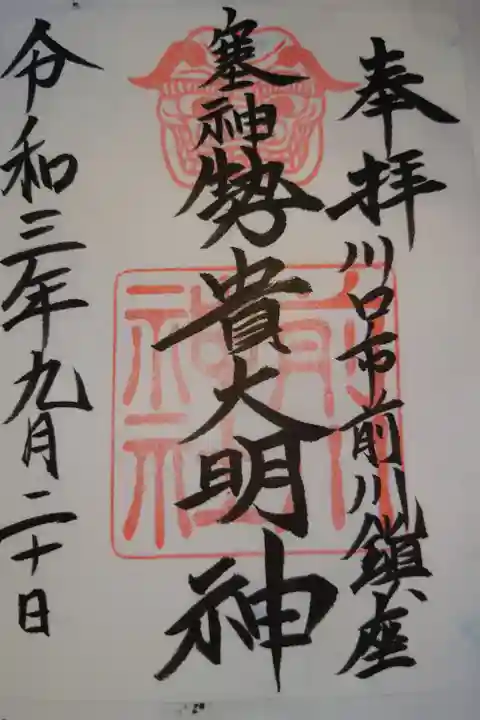 奉拝川口市前川鎮座
塞神勢貴大明神
令和三年九月二十日
前川
神社